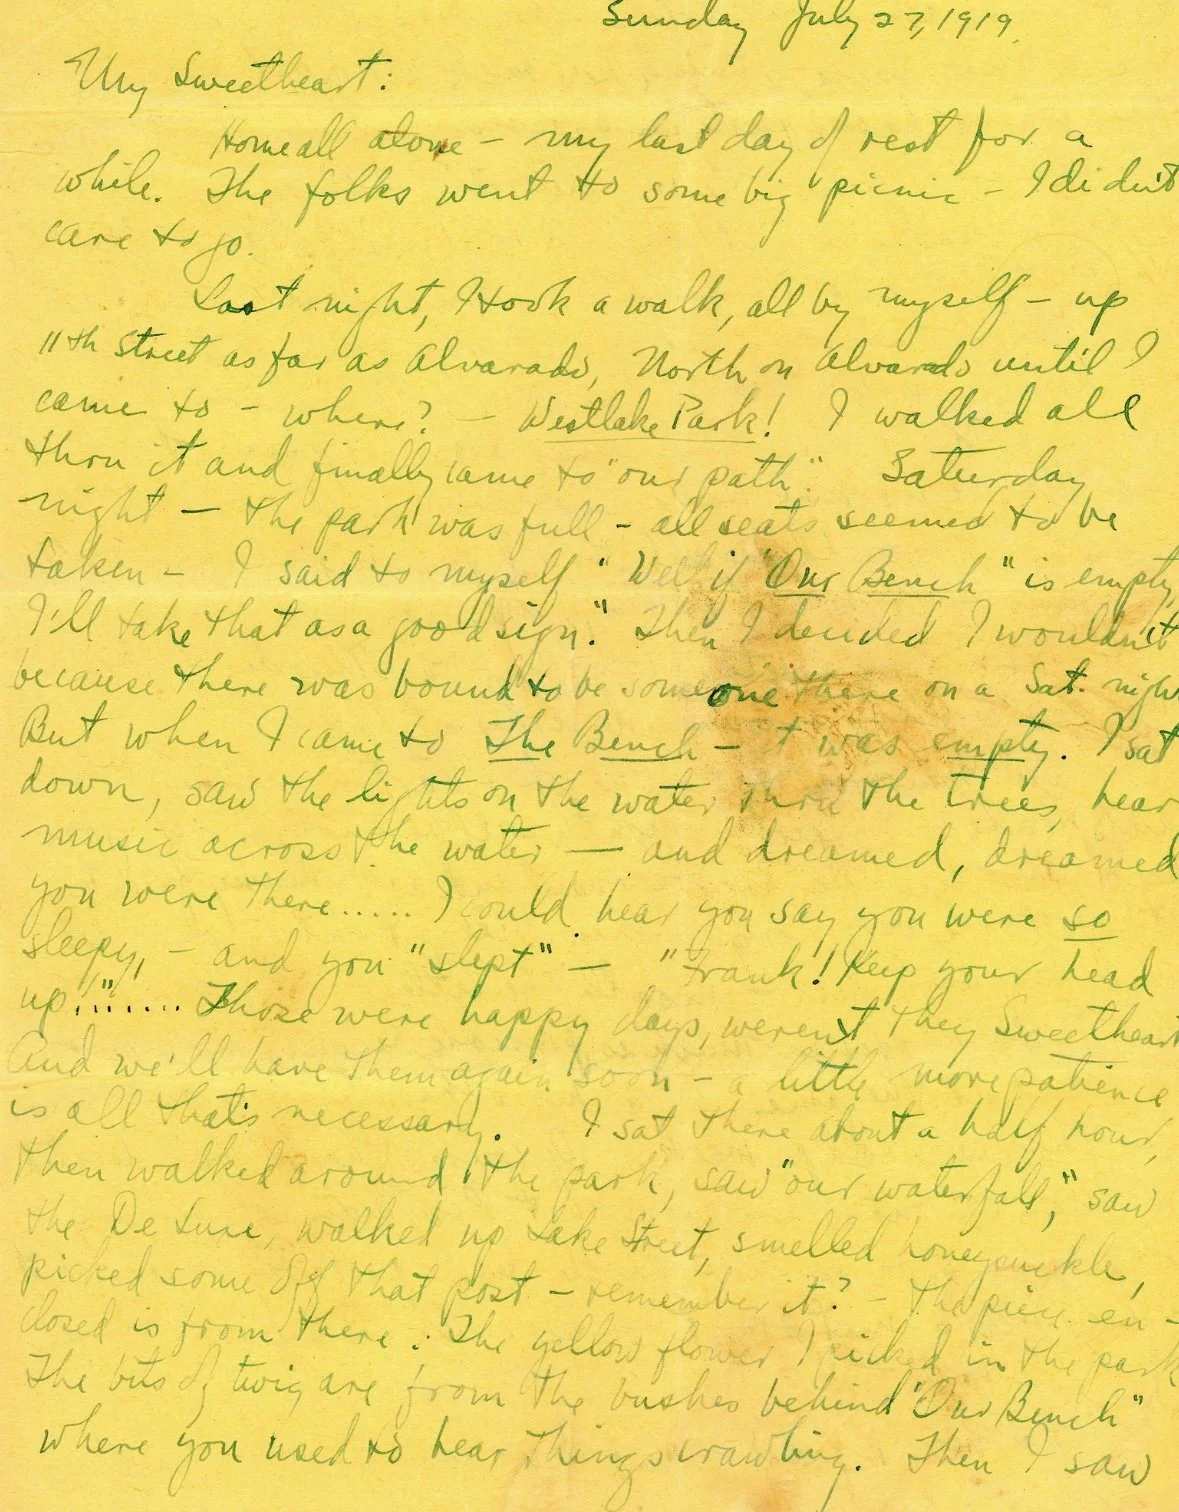 Sunday July 27, 1919.
My Sweetheart:
Home all alone - my last day of rest for a
while. The folks went to some big picnic - I didn't
care to go.
Last night, I took a walk, all by myself - up
11th Street as far as Alvarado, North on Alvarado until I
came to - where? - Westlake Park! I walked all
thru it and finally came to "our path." Saturday
night - the park was full - all seats seemed to be
taken - I said to myself "Well if "Our Bench" is empty,
I'll take that as a good sign." Then I decided I wouldn't
because there was bound to be someone there on a Sat. night
But when I came to The Bench - it was empty. I sat
down, saw the lights on the water thru the trees, hear
music across the water - and dreamed, dreamed
you were there..... I could hear you say you were so
sleepy, - and you "slept" - "Frank! Keep your head
up!"....... Those were happy days, weren't they Sweetheart
And we'll have them again soon - a little more patience
is all that's necessary. I sat there about a half hour,
then walked around the park, saw "our waterfall," saw
the De Luxe, walked up Lake Street, smelled honeysuckle,
picked some off that post - remember it? - The piece en-
closed is from there. The yellow flower I picked in the park
The bits of twig are from the bushes behind "Our Bench"
where you used to hear things crawling. Then I saw